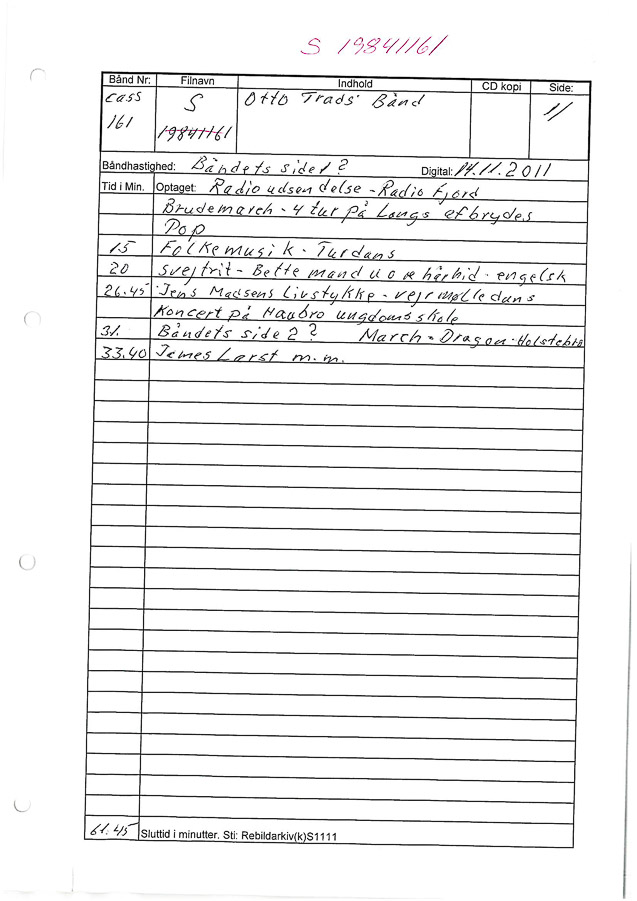 S 19841161
Bånd Nr: Filnavn Indhold CD kopi Side:
cass 161 S 19841161 Otto Trads' Bånd 1/
Båndhastighed: Båndets side 1? Digital: 14.11.2011
Tid i Min. Optaget: Radioudsendelse - Radio Fjord
Brudemarch - 4 tur på Langs afbrydes
Pop
15 Folkemusik - Turdans
20 svejtrit - Bette mand u o re hårhid - engelsk
26.45 Jens Madsens Livstykke - vejrmølledans
Koncert på Haubro ungdomsskole
31. Båndets side 2? March - Dragon - Holstebro
33.40 James Larst m.m.
61.45 Sluttid i minutter. Sti: Rebildarkiv(k)S1111